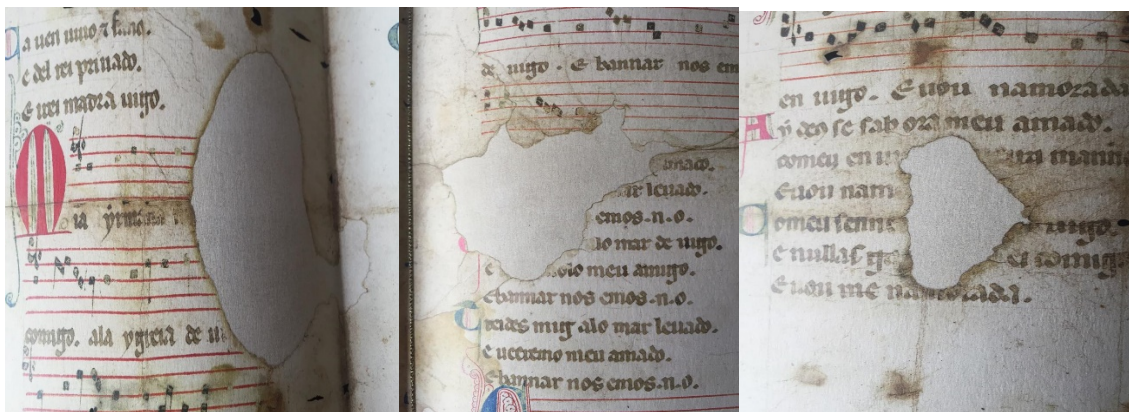 a uen uiuo ⁊ sano.
e del rei priuado.
E irei madra uigo.
comigo. ala ygreia de
de uigo. E bannar nos em
amado.
ar leuado.
emos .n.o.
lo mar de uigo.
e olo meu amigo.
E bannar nos emos .n.o.
Creides mig alo mar leuado.
e ueeremo meu amado.
E bannar nos emos .n.o.
en uigo. E uou namorada
A y deo se sab ora meu amado.
comeu en
E uou nam
Comeu senne uigo.
e nullas
E uou me namorada.